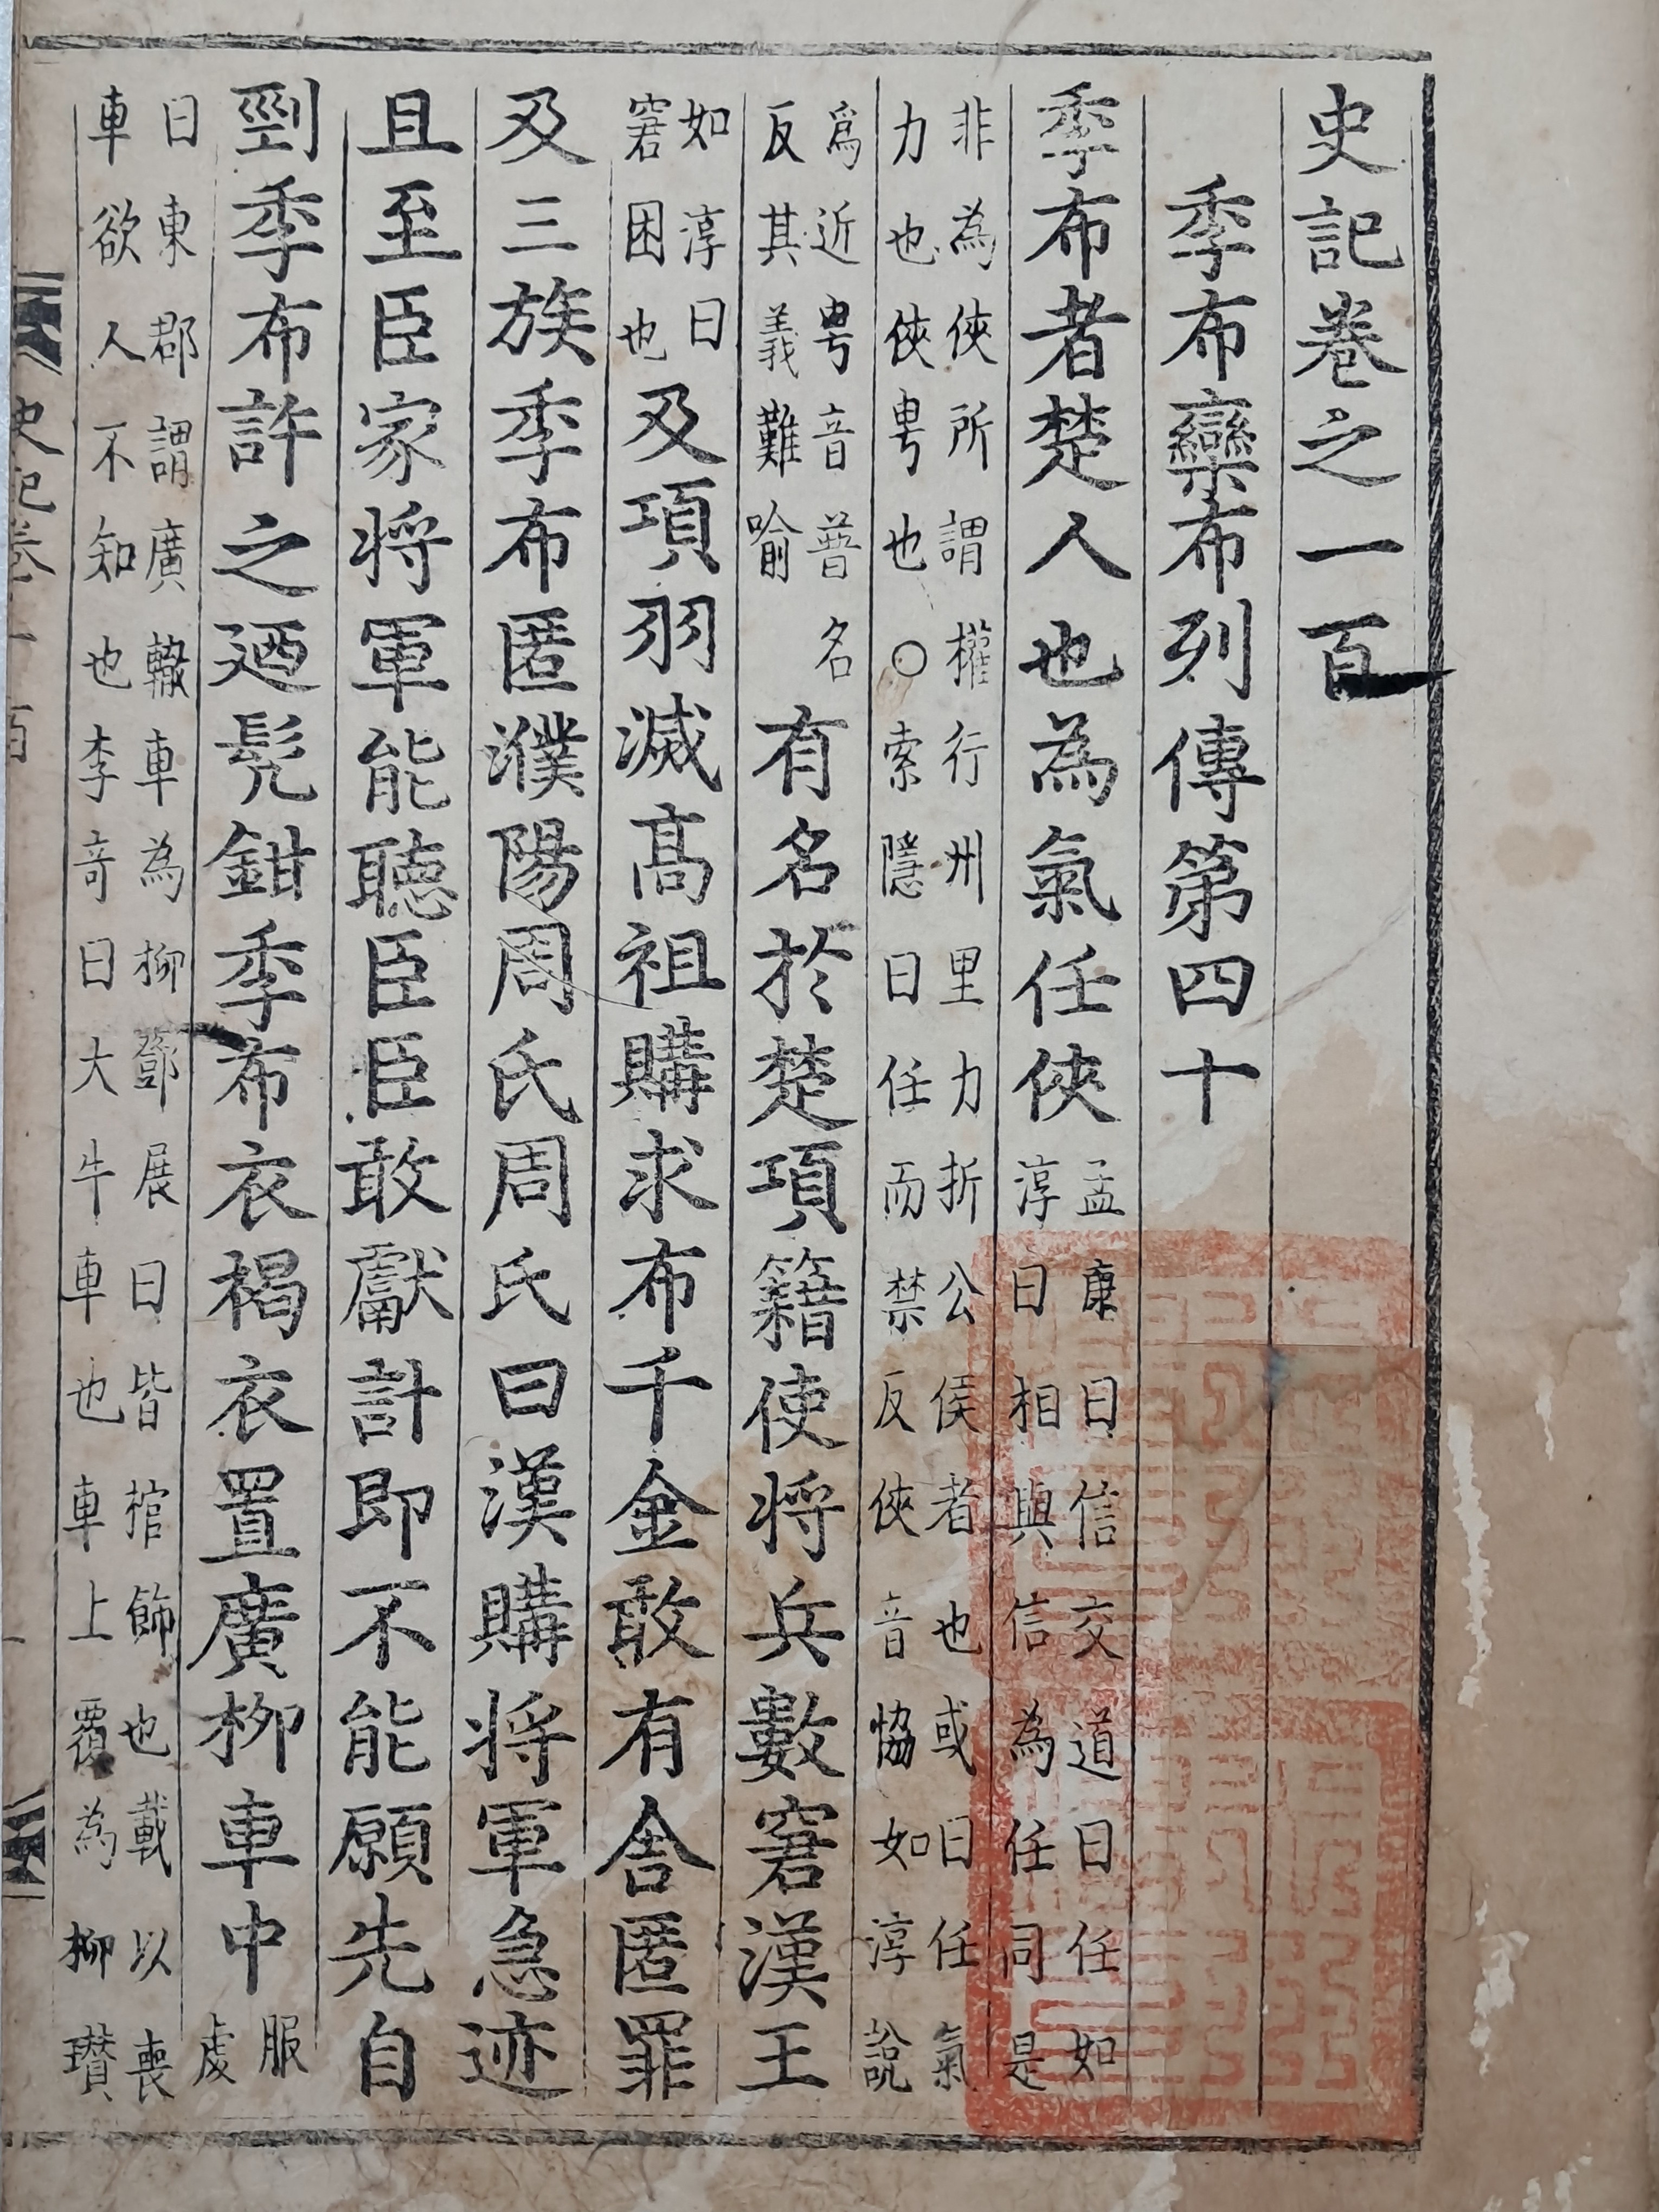 史記卷之一百
季布欒布列傳第四十
季布者楚人也為氣任俠孟康曰信交道曰任如淳曰相與信為任同是
非為俠所謂權行州里力折公侯者也或曰任氣力也俠甹也○索隱曰任而禁反俠音協如淳說
爲近甹音普名反其義難喻有名於楚項籍使將兵數窘漢王
如淳曰窘困也及項羽滅高祖購求布千金敢有舍匿罪
及三族季布匿濮陽周氏周氏曰漢購將軍急迹
且至臣家將軍能聽臣臣敢獻計即不能願先自
剄季布許之廼髡鉗季布衣褐衣置廣柳車中服虔
曰東郡謂廣轍車為柳鄧展曰皆棺飾也載以喪車欲人不知也李奇曰大牛車也車上覆為柳瓚
史記卷一百
一